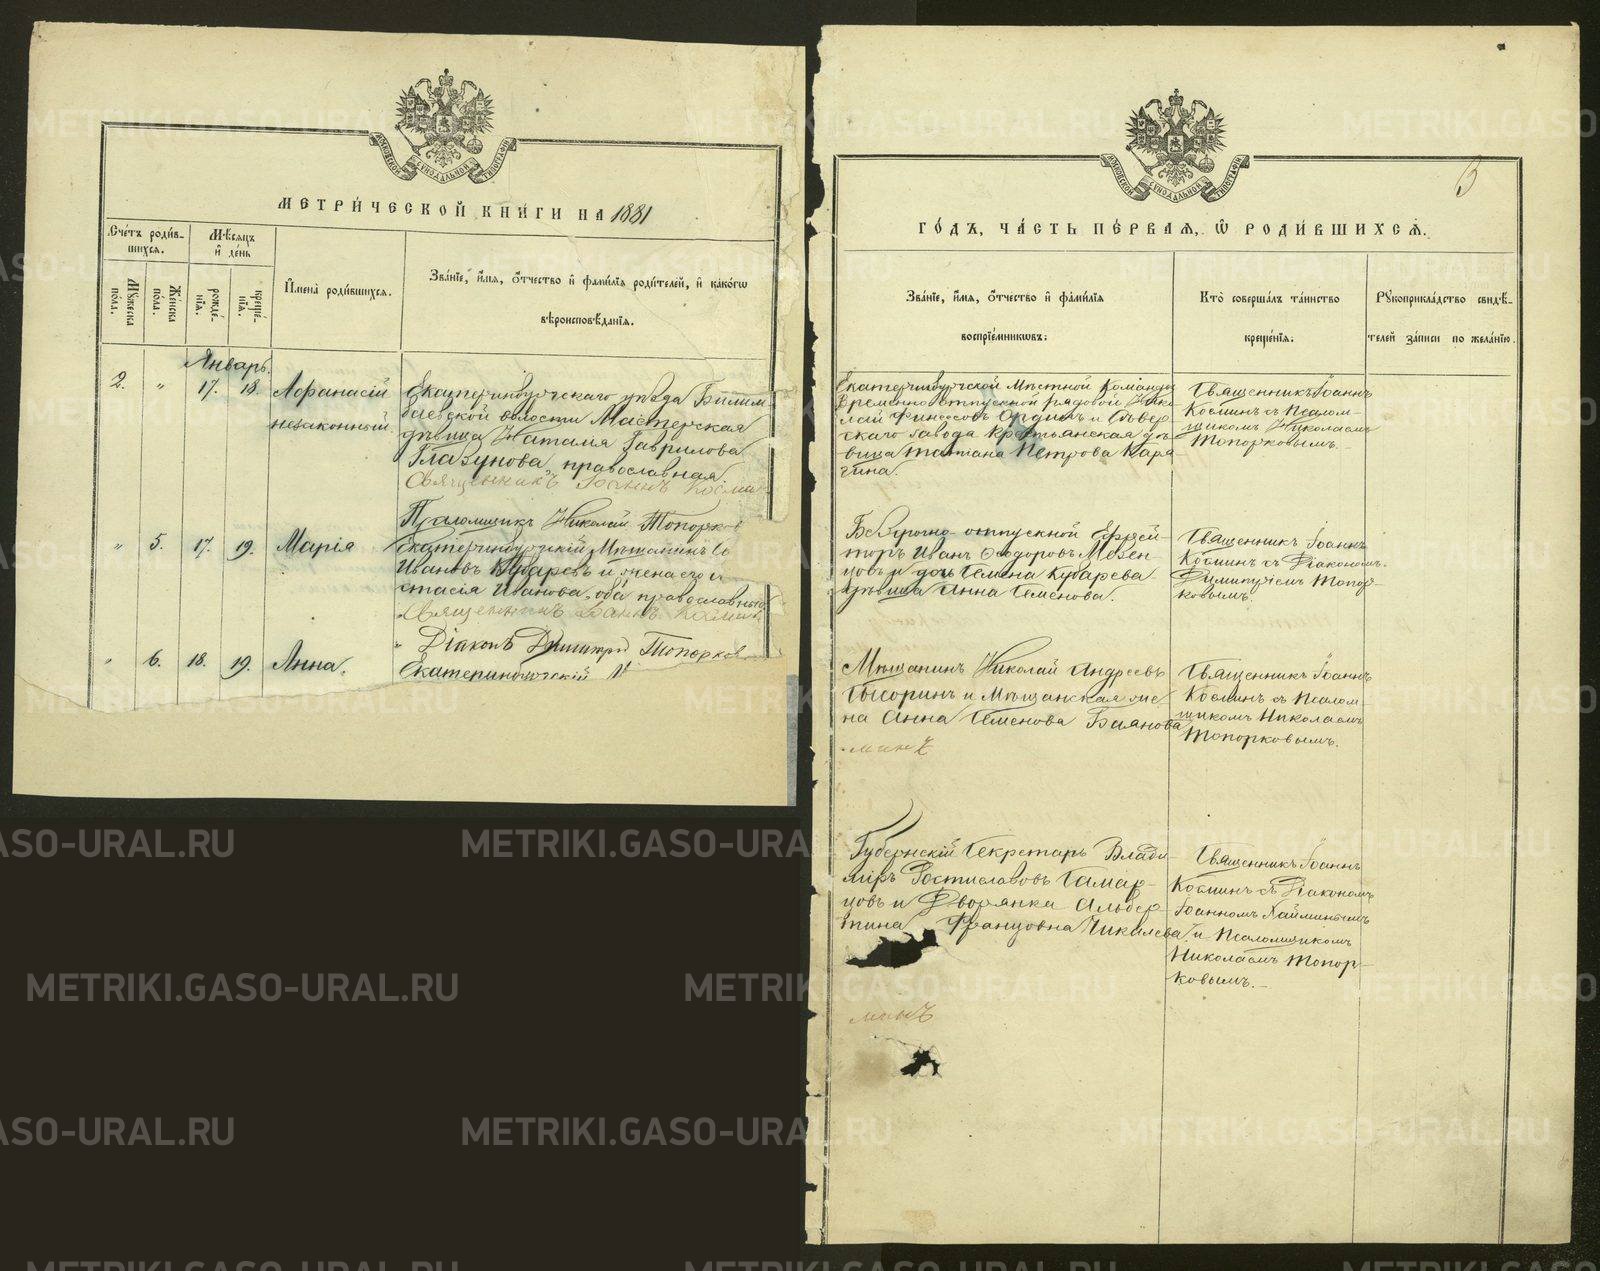 МОСКОВСКОЙ СѴНОДАЛЬНОЙ ТИПОГРАФІИ
МЕТРИ́ЧЕСКОЙ КНИ́ГИ НА 1881
Сче́тъ роди́в-
шихся.
Мѣ́сяцъ
и҆ де́нь
Мꙋ́жеска
по́ла.
Же́нска
по́ла.
рожде́-
нїѧ.
креще́-
нїѧ.
И҆мена̀ роди́вшихсѧ.
Зва́нїе, и҆́мѧ, ѻ҆́тчество и҆ фами́лїѧ роди́телей, и҆ како́гѡ
вѣроисповѣ́данїѧ.
Январь.
2. " 17. 18. Афанасій
незаконный
Екатеринбургскаго уѣзда Билим-
баевской волости Мастерская
дѣвица Наталія Гаврилова
Глазунова, православная.
Священникъ Іоаннъ Косми
Псаломщикъ Николай Топорков
" 5. 17. 19. Марія
Екатеринбургскій Мѣщанинъ
Ивановъ Кубаревъ и жена его
стасія Иванова, оба православные
Священникъ Іоаннъ Косми
Діаконъ Димитрій Топорков
" 6. 18. 19. Анна.
Екатеринбургскій
МОСКОВСКОЙ СѴНОДАЛЬНОЙ ТИПОГРАФІИ
ГО́ДЪ, ЧА́СТЬ ПЕ́РВАЯ, Ѽ РОДИ́ВШИХСѦ.
Зва́нїе, и҆́мѧ, ѻ҆́тчество и҆ фами́лїѧ
воспрїе́мникѡвъ:
Кто̀ соверша́лъ та́инство
креще́нїѧ:
Рꙋкоприкла́дство свидѣ́-
телей за́писи по жела́нїю.
Екатеринбургской Мѣстной Команды
Временно отпускной рядовой Нико-
лай и Сѣвер-
скаго завода Крестьянская дѣ-
вица Татіана Петрова Кара-
гина.
Священникъ Іоаннъ
Косминъ съ Псалом-
щикомъ Николаемъ
Топорковымъ.
Безсрочно отпускной Ефрей-
торъ Иванъ Ѳеодоровъ Мезен-
цовъ и дочь Семена Кубарева
дѣвица Анна Семенова.
Священникъ Іоаннъ
Косминъ съ Діакономъ
Димитріемъ Топор-
ковымъ.
Мѣщанинъ Николай Андреевъ
Сысоринъ и Мѣщанская же-
на Анна Семенова Баянова
минъ
Священникъ Іоаннъ
Косминъ съ Псалом-
щикомъ Николаемъ
Топорковымъ.
Губернскій Секретарь Влади-
міръ Ростиславовъ Самар-
цовъ и Дворянка Альбер-
тина Францовна Чикалева
минъ
Священникъ Іоаннъ
Косминъ съ Діакономъ
Іоанномъ Хайминымъ
и Псаломщикомъ
Николаемъ Топор-
ковымъ.
METRIKI.GASO-URAL.RU